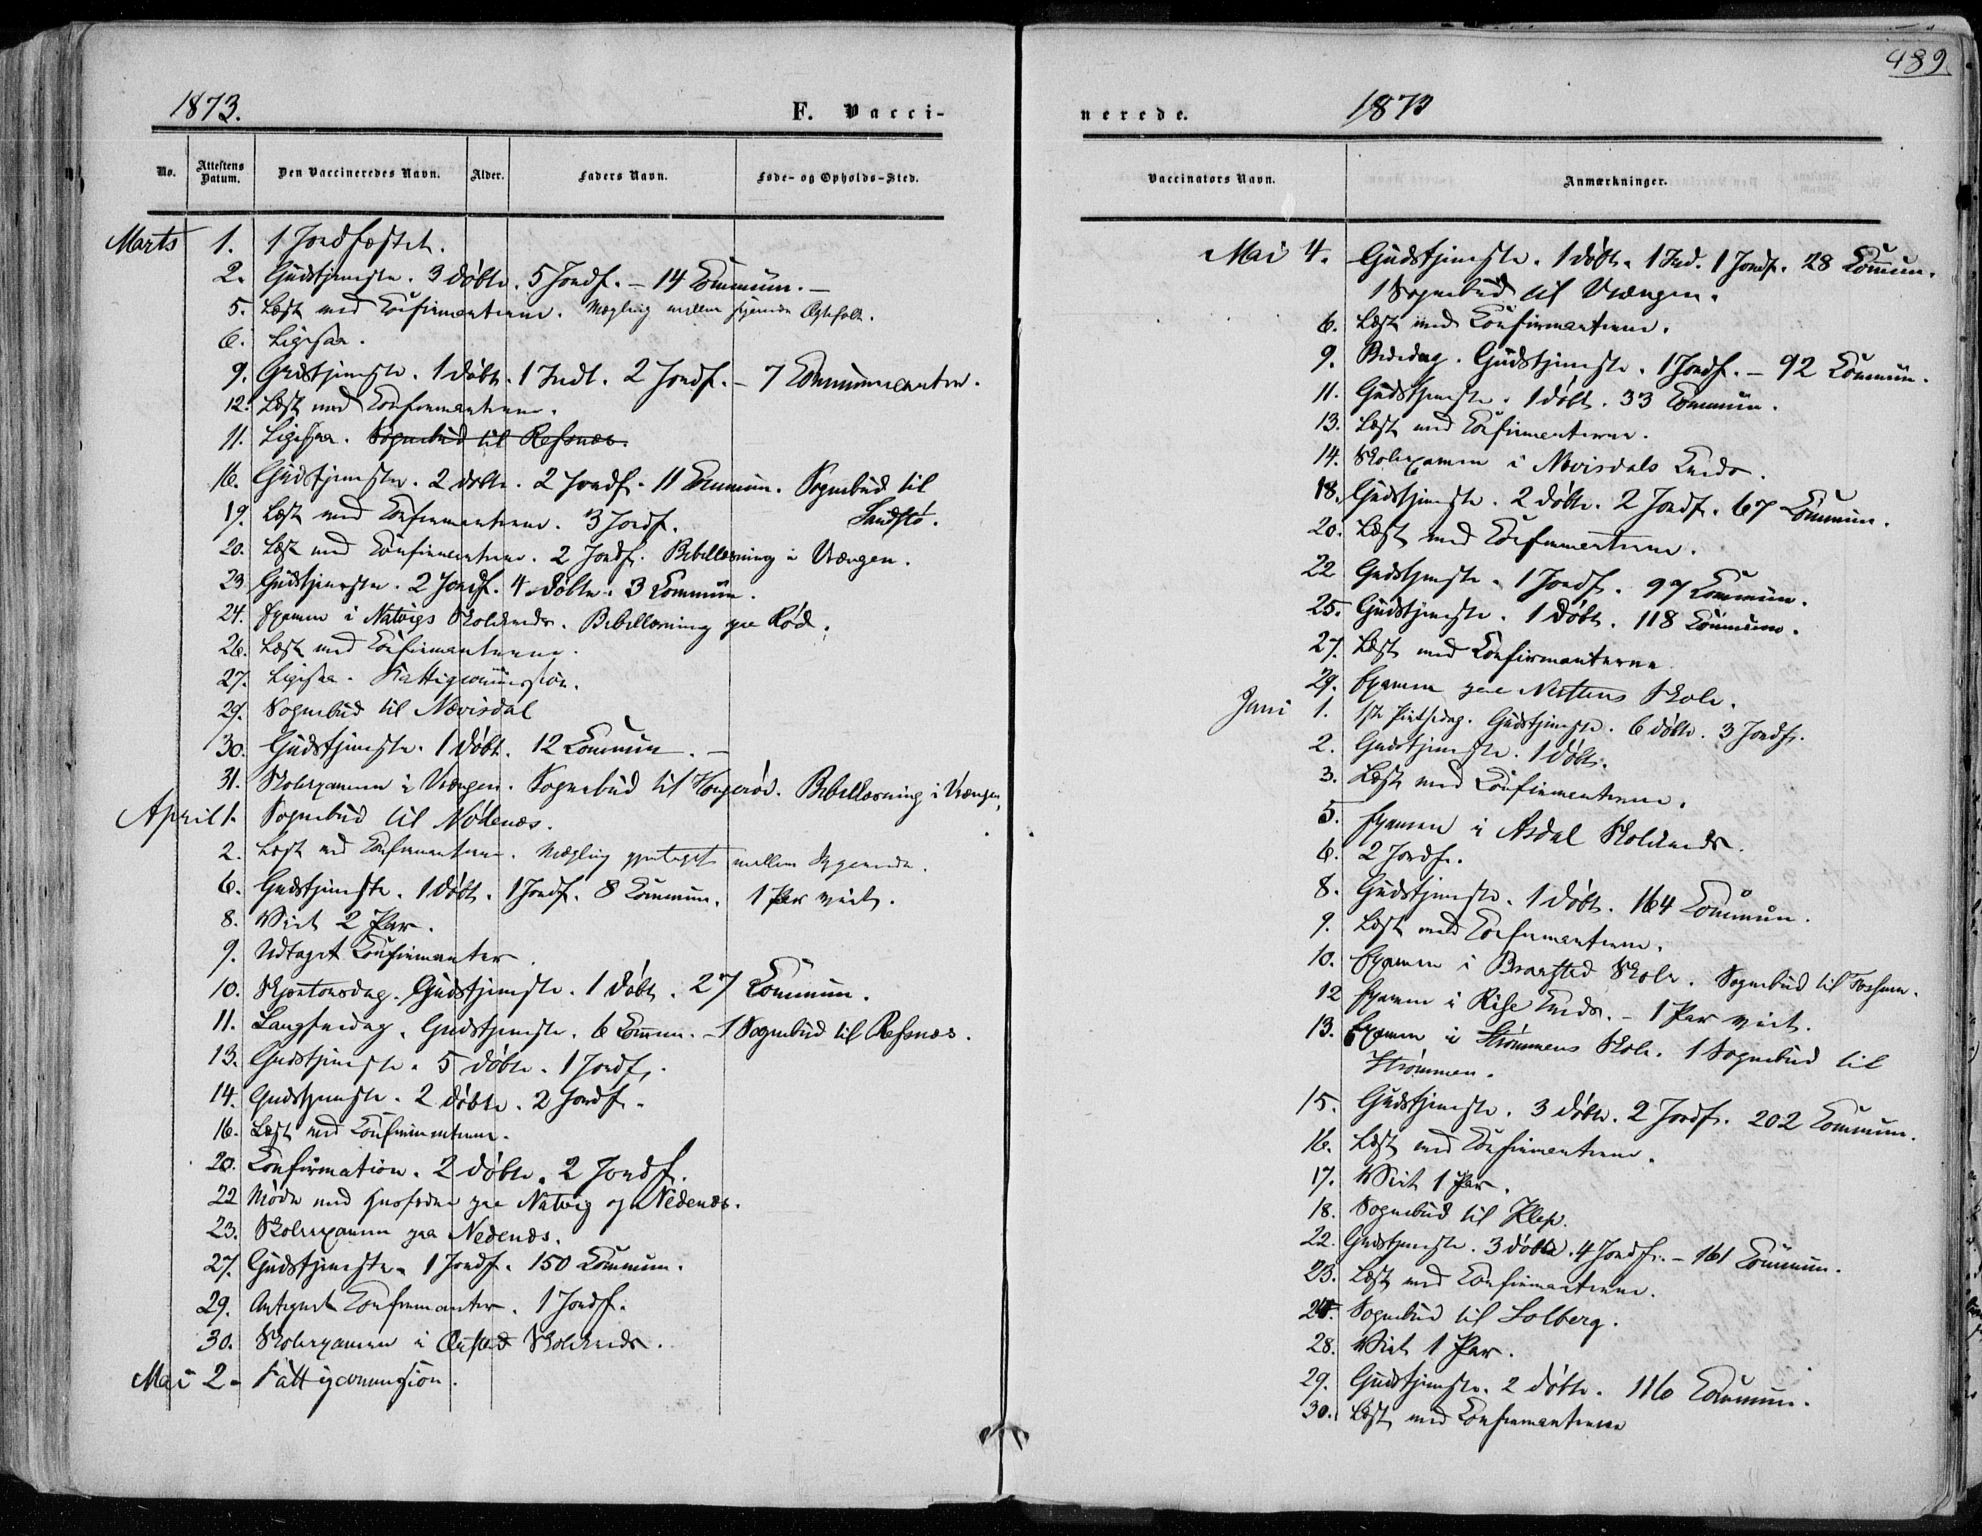 489
1873.
F. Vacci-
No.
Attestens Datum.
Den Vaccineredes Navn.
Alder.
Faders Navn.
Føde- og Opholds-Sted.
Marts 1. 1 Jordfæstet.
2. Gudstjeneste. 3 døbte. 5 Jordf. – 14 Commun. –
5. Læst med Confirmanterne. Mægling mellem Ægtefolk.
6. Ligesaa.
9. Gudstjeneste. 1 døbt. 1 Indl. 2 Jordf. – 7 Communicanter.
12. Læst med Confirmanterne.
11. Ligesaa. Sognebud til Refsnæs.
16. Gudstjeneste. 2 døbte. 2 Jordf. 11 Commun. Sognebud til
Sandstø.
19. Læst med Confirmanterne. 3 Jordf.
20. Læst med Confirmanterne. 2 Jordf. Bibellæsning i Vrængen.
23. Gudstjeneste. 2 Jordf. 4 døbte. 3 Commun.
24. Examen i Natvigs Skolekreds. Bibellæsning paa Rød.
26. Læst med Confirmanterne.
27. Ligesaa. Fattigcommission.
29. Sognebud til Nævisdal
30. Gudstjeneste. 1 døbt. 12 Commun. –
31. Skoleexamen i Vrængen. Sognebud til Bibellæsning i Vrængen.
April 1. Sognebud til Nedenæs.
2. Læst med Confirmanterne. Mægling mellem
6. Gudstjeneste. 1 døbt. 1 Jordf. 8 Commun. 1 Par viet.
8. Viet 2 Par.
9. Udtaget Confirmanter.
10. Skjærtorsdag. Gudstjeneste. 1 døbt. 27 Commun.
11. Langfredag. Gudstjeneste. 6 Commun. – 1 Sognebud til Refsnæs.
13. Gudstjeneste. 5 døbte. 1 Jordf.
14. Gudstjeneste. 2 døbte. 2 Jordf.
16. Læst med Confirmanterne.
20. Confirmation. 2 døbte. 2 Jordf.
22 Møde med paa Natvig og Nedenæs.
23. Skoleexamen paa Nedenæs.
27. Gudstjeneste. 1 Jordf. 150 Commun.
29. Antegnet Confirmanter. 1 Jordf.
30. Skoleexamen i Skolekreds.
Mai 2. Fattigcommission.
nerede.
1873
Vaccinators Navn.
Anmærkninger.
Mai 4. Gudstjeneste. 1 døbt. 1 Ind. 1 Jordf. 28 Commun.
1 Sognebud til Vrængen.
6. Læst med Confirmanterne.
9. Bededag. Gudstjeneste. 1 Jordf. – 92 Commun.
11. Gudstjeneste. 1 døbt. 33 Commun.
13. Læst med Confirmanterne.
14. Skoleexamen i Nævisdals Kreds.
18. Gudstjeneste. 2 døbte. 2 Jordf. 67 Commun.
20. Læst med Confirmanterne.
22 Gudstjeneste. 1 Jordf. 97 Commun.
25. Gudstjeneste. 1 døbt. 118 Commun.
27. Læst med Confirmanterne
29. Examen paa Skole.
Juni 1. 1ste Pintsedag. Gudstjeneste. 6 døbte. 3 Jordf.
2. Gudstjeneste. 1 døbt.
3. Læst med Confirmanterne.
5. Examen i Asdal Skolekreds.
6. 2 Jordf.
8. Gudstjeneste. 1 døbt. 164 Commun.
9. Læst med Confirmanterne.
10. Examen i Skole. Sognebud til
12 Examen i Rise Kreds. – 1 Par viet.
13. Examen i Strømmens Skole. 1 Sognebud til
Strømmen.
15. Gudstjeneste. 3 døbte. 2 Jordf. 202 Commun.
16. Læst med Confirmanterne.
17. Viet 1 Par.
18. Sognebud til Klep.
22. Gudstjeneste. 3 døbte. 4 Jordf. – 161 Commun.
23. Læst med Confirmanterne.
Sognebud til Solberg.
28. Viet 1 Par.
29. Gudstjeneste. 2 døbte. 116 Commun.
30. Læst med Confirmanterne